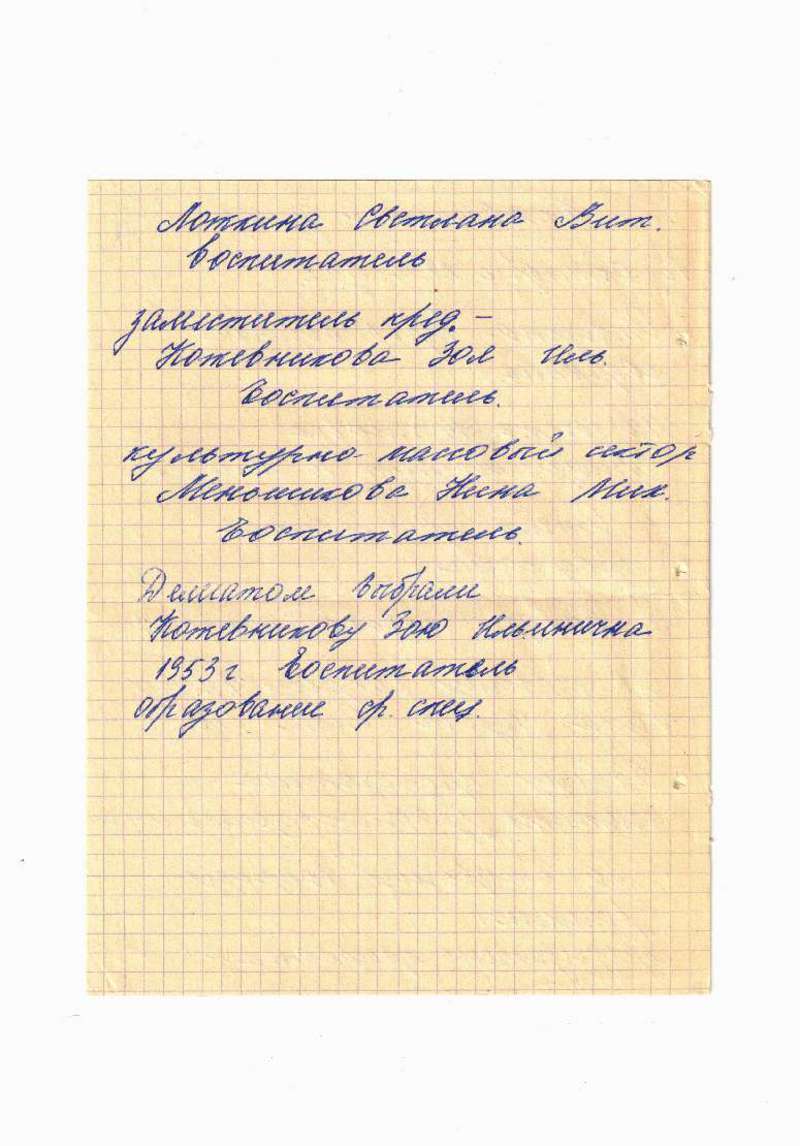 Лоткина Светлана Вит.
Воспитатель
заместитель пред. -
Кожевникова Зоя Иль.
Воспитатель.
культурно-массовый сектор
Меньшикова Нина Мих.
Воспитатель.
Делегатом выбрали
Кожевникову Зою Ильинична
1953 г. Воспитатель
образование ср. спец.